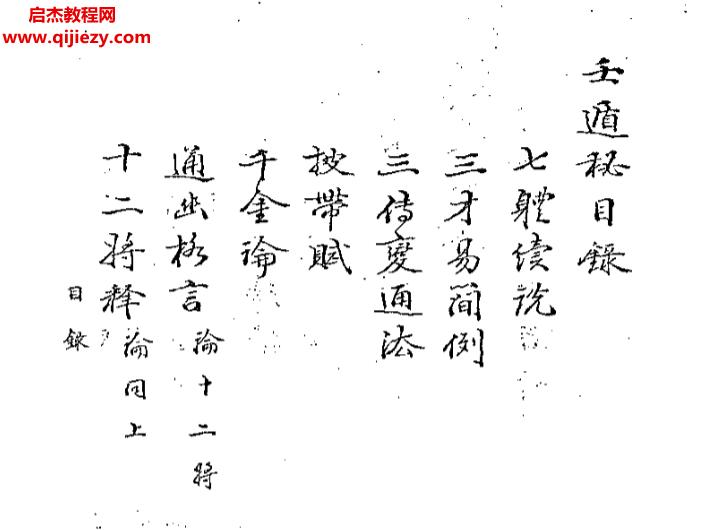 启杰教程网
www.qijiezy.com
壬遁秘目錄
七體续説
三才易簡例
三傳變通法
披帶賦
千金論
通幽格言 論十二將
十二將釋 論同上
目錄